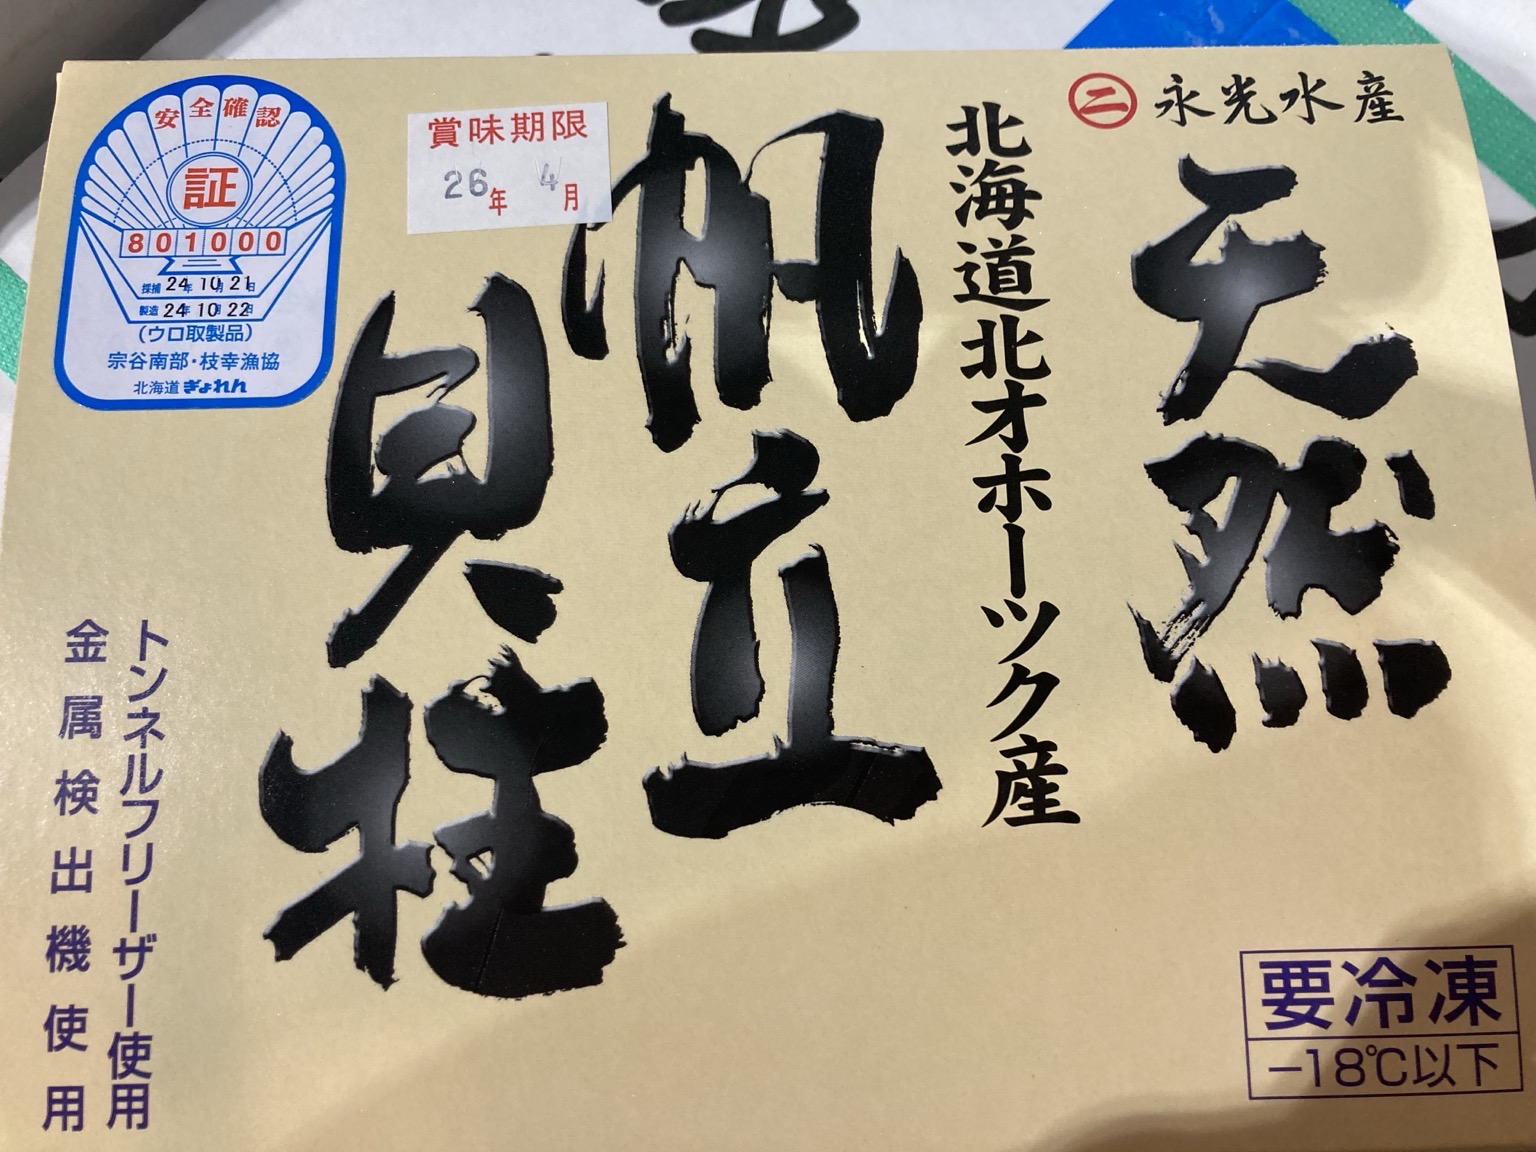 ㊁ 永光水産
天然
北海道北オホーツク産
帆立
貝柱
賞味期限
26年 4月
安全確認
証
801000
採捕 24年 10月 21日
製造 24年 10月 22日
(ウロ取製品)
宗谷南部・枝幸漁協
北海道ぎょれん
トンネルフリーザー使用
金属検出機使用
要冷凍
−18℃以下